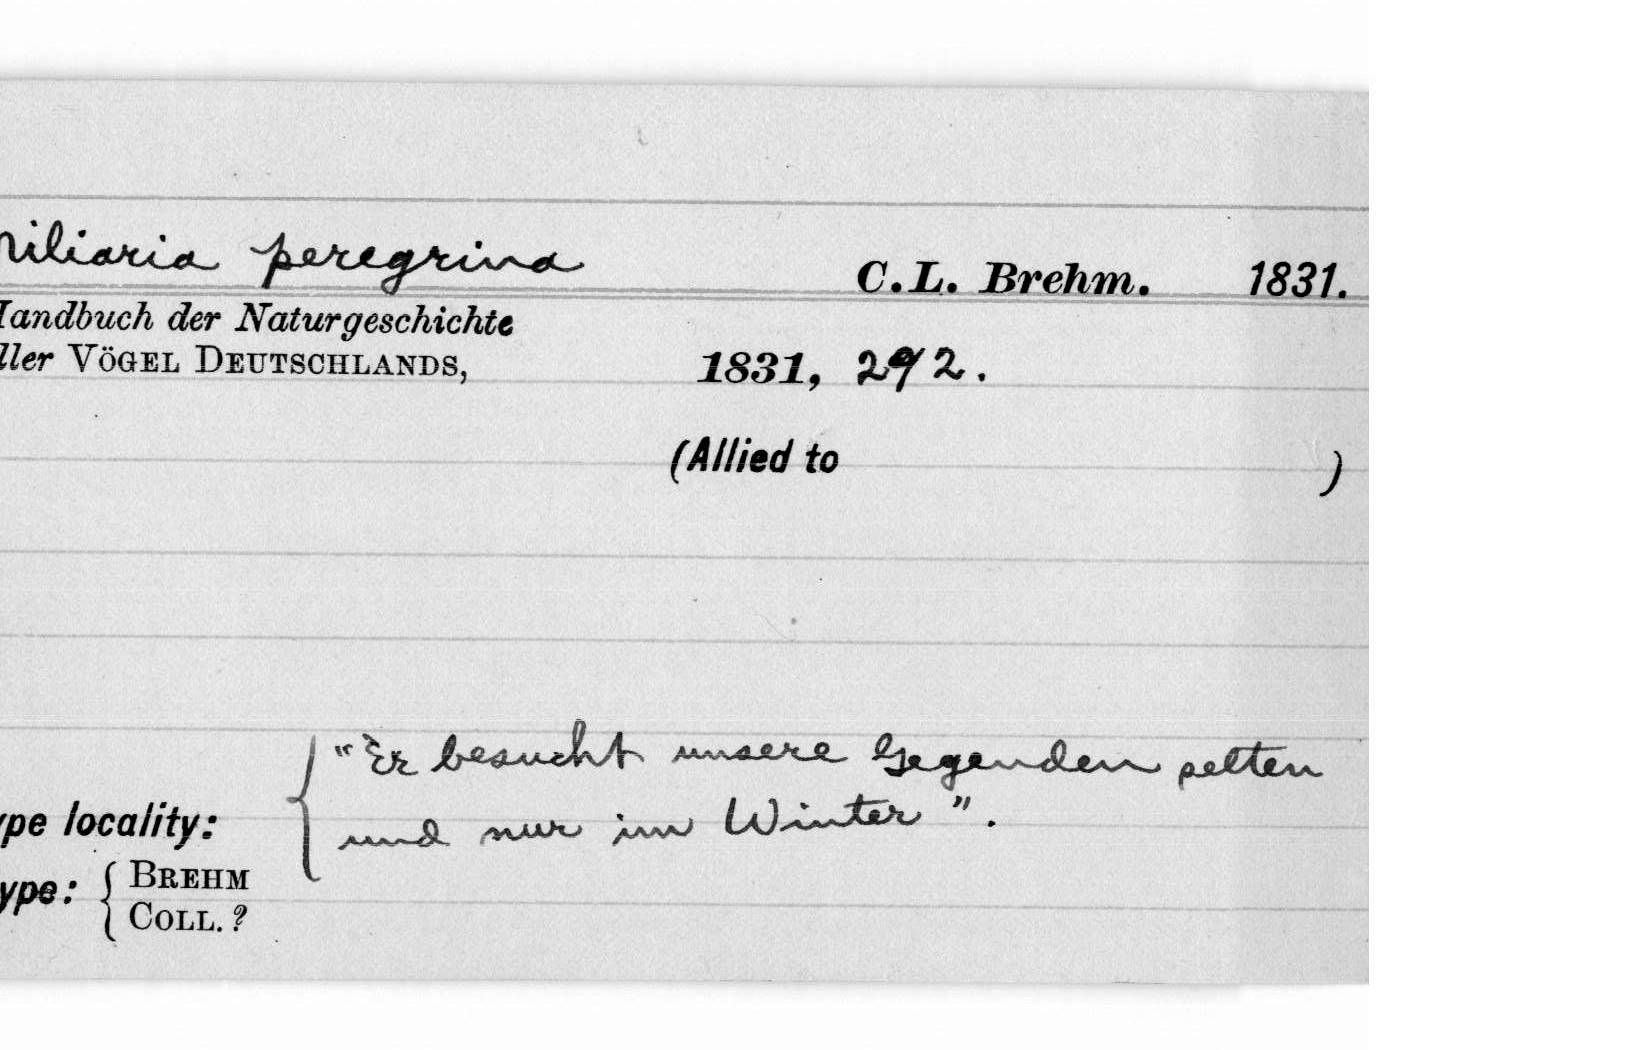 niliaria peregrina C.L. Brehm. 1831.
Handbuch der Naturgeschichte
ller VÖGEL DEUTSCHLANDS, 1831, 292.
(Allied to )
"Er besucht unsere Gegenden selten
ype locality: und nur im Winter".
ype: BREHM
COLL. ?